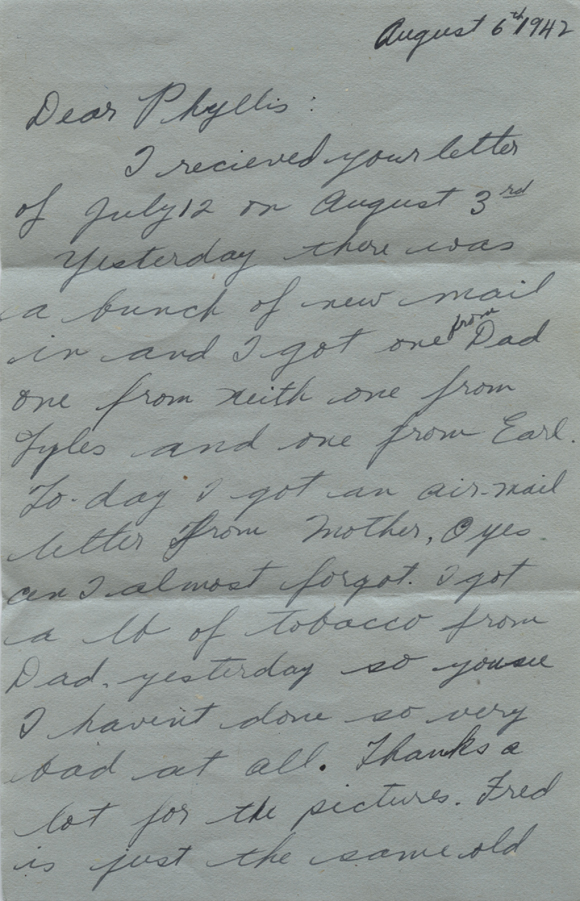 August 6th 1942
Dear Phyllis:
I recieved your letter
of July 12 on August 3rd
Yesterday there was
a bunch of new mail
in and I got one from Dad
one from Keith one from
Lyles and one from Earl.
To-day I got an air-mail
letter from Mother, O yes
an I almost forgot. I got
a lb of tobacco from
Dad. yesterday so you see
I haven't done so very
bad at all. Thanks a
lot for the pictures. Fred
is just the same old